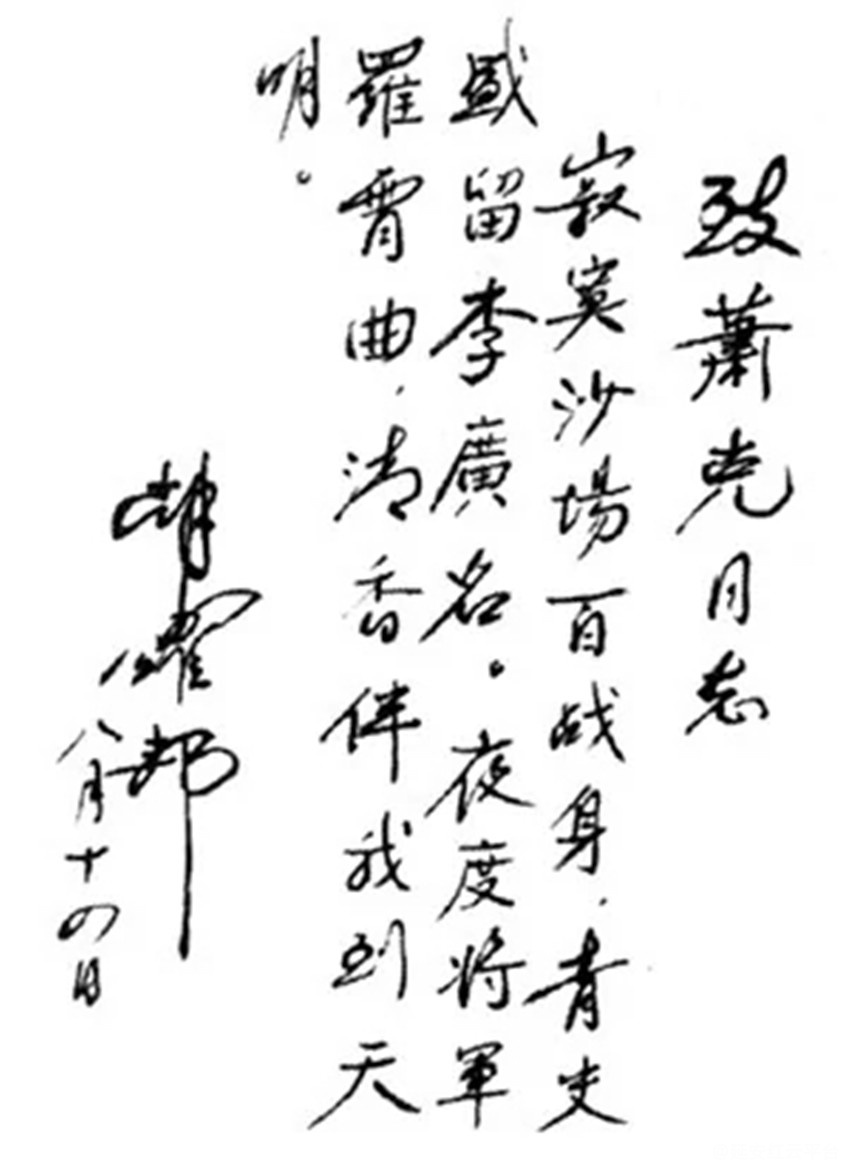 致蕭克同志
寂寞沙場百战身，青史
盛留李廣名。夜度將軍
羅霄曲，清香伴我到天
明。
胡耀邦
八月十四日